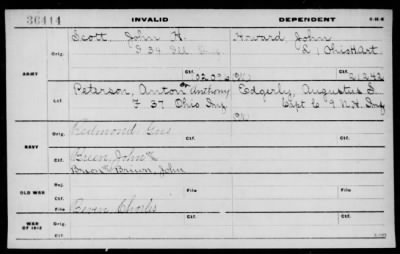 36414 INVALID DEPENDENT
Scott, John H. Howard John
Orig. F 34 Ill Inf L 1 Ohio H Art
ARMY Ctf. Ctf. 21242
Peterson, Anton or Anthony Edgerly, Augustus S
Ctf. F 37 Ohio Inf Capt C 9 N.H. Inf
Redmond Gus
Orig. Orig.
NAVY
Green, John
Ctf. John Ctf.
Rej.
OLD WAR Ctf. File
File Bevin Charles
WAR OF 1812 Orig. Ctf.
Ctf.